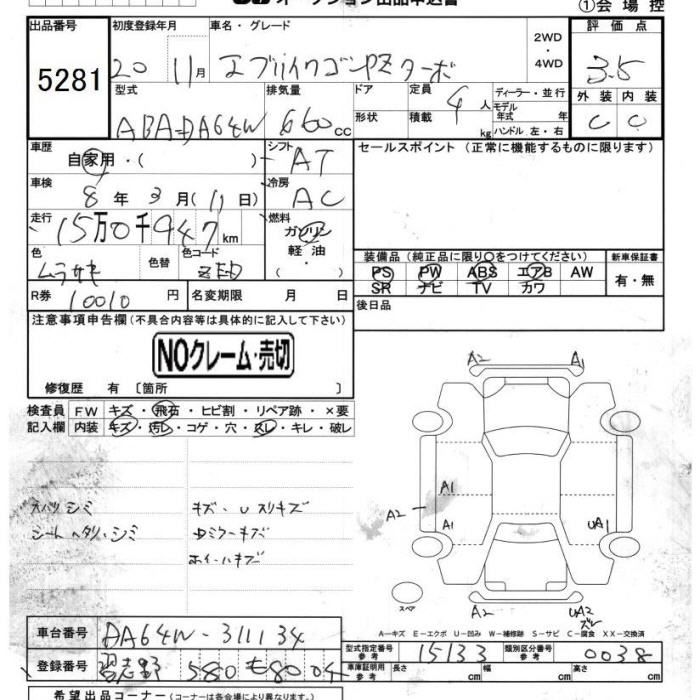 ①会場控
出品番号 初度登録年月 車名・グレード 評価点
5281 20 11月 エブリイワゴンPZターボ 2WD・4WD 3.5
型式 排気量 ドア 定員 4人 ディーラー・並行 外装 内装
ABA-DA64W 660cc 形状 積載 kg モデル年式 年 ハンドル 左・右 C C
車歴 シフト セールスポイント (正常に機能するものに限ります)
自家用・( ) AT
車検 冷房
8年3月(11日) AC
走行 燃料
15万0千947km ガソリン
軽油
色 色替 色コード ( ) 装備品 (純正品に限り○をつけてください) 新車保証書
ムラサキ PS PW ABS エアB AW 有・無
SR ナビ TV カワ
R券 10010円 名変期限 月 日 後日品
注意事項申告欄 (不具合内容等は具体的に記入して下さい)
NOクレーム・売切
修復歴 有 [箇所 ]
検査員 FW キズ・飛石・ヒビ割・リペア跡・×要
記入欄 内装 キズ・汚レ・コゲ・穴・スレ・キレ・破レ
シート ヘタリ、シミ
キズ・Uスリキズ
Dミラーキズ
ホイールキズ
A2 A1
A1
A2 A1 UA1
A2 UA2
スペア
A-キズ E-エクボ U-凹み W-補修跡 S-サビ C-腐食 XX-交換済
車台番号 DA64W-311134
型式指定番号 参考 15133 類別区分番号 参考 0038
登録番号 習志野 580 も 80 04
車庫証明用 参考 長さ 幅 高さ cm
希望出品コーナー (コーナーは各会場により異なります。)